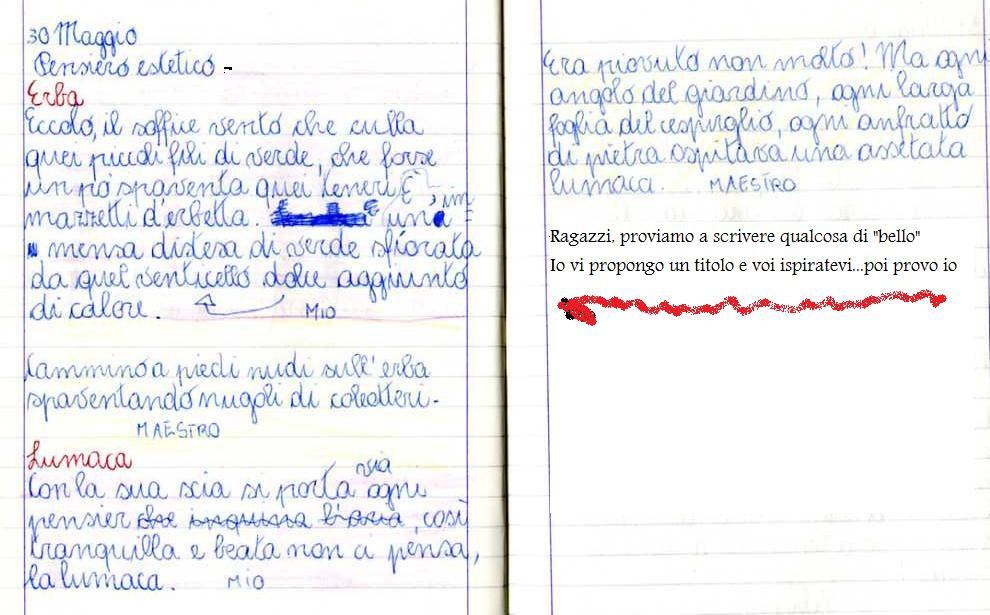 30 Maggio
Pensiero estetico -
Erba
Eccolo, il soffice vento che culla
quei piccoli fili di verde, che forse
un pò spaventa quei teneri
mazzetti d'erbetta. È una im=
mensa distesa di verde sfiorata
da quel venticello dolce aggiunto
di calore. MIO
Cammino a piedi nudi sull'erba
spaventando nugoli di coleotteri.
MAESTRO
Lumaca
Con la sua scia si porta via ogni
pensier che inquina l'aria, così
tranquilla e beata non ci pensa,
la lumaca. MIO
Era piovuto non molto! Ma ogni
angolo del giardino, ogni larga
foglia del cespuglio, ogni anfratto
di pietra ospitava una assetata
lumaca. MAESTRO
Ragazzi, proviamo a scrivere qualcosa di "bello"
Io vi propongo un titolo e voi ispiratevi...poi provo io